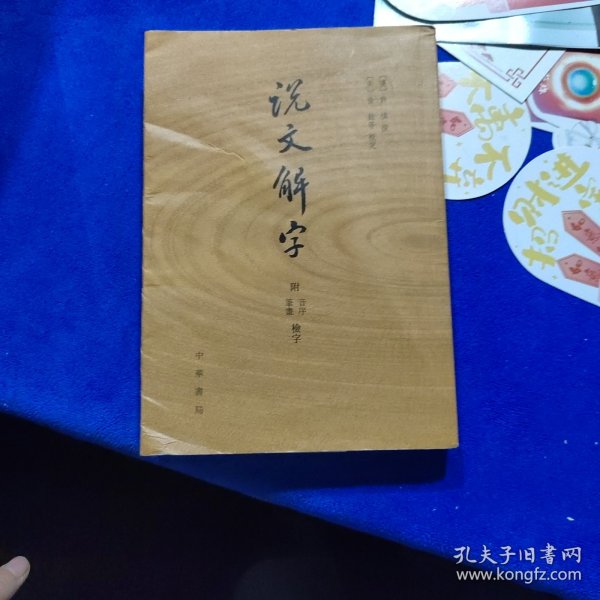 说文解字
[漢]許慎撰
[宋]徐鉉等校定
附
音序
筆畫
檢字
中華書局
孔夫子旧書网
www.kongfz.com